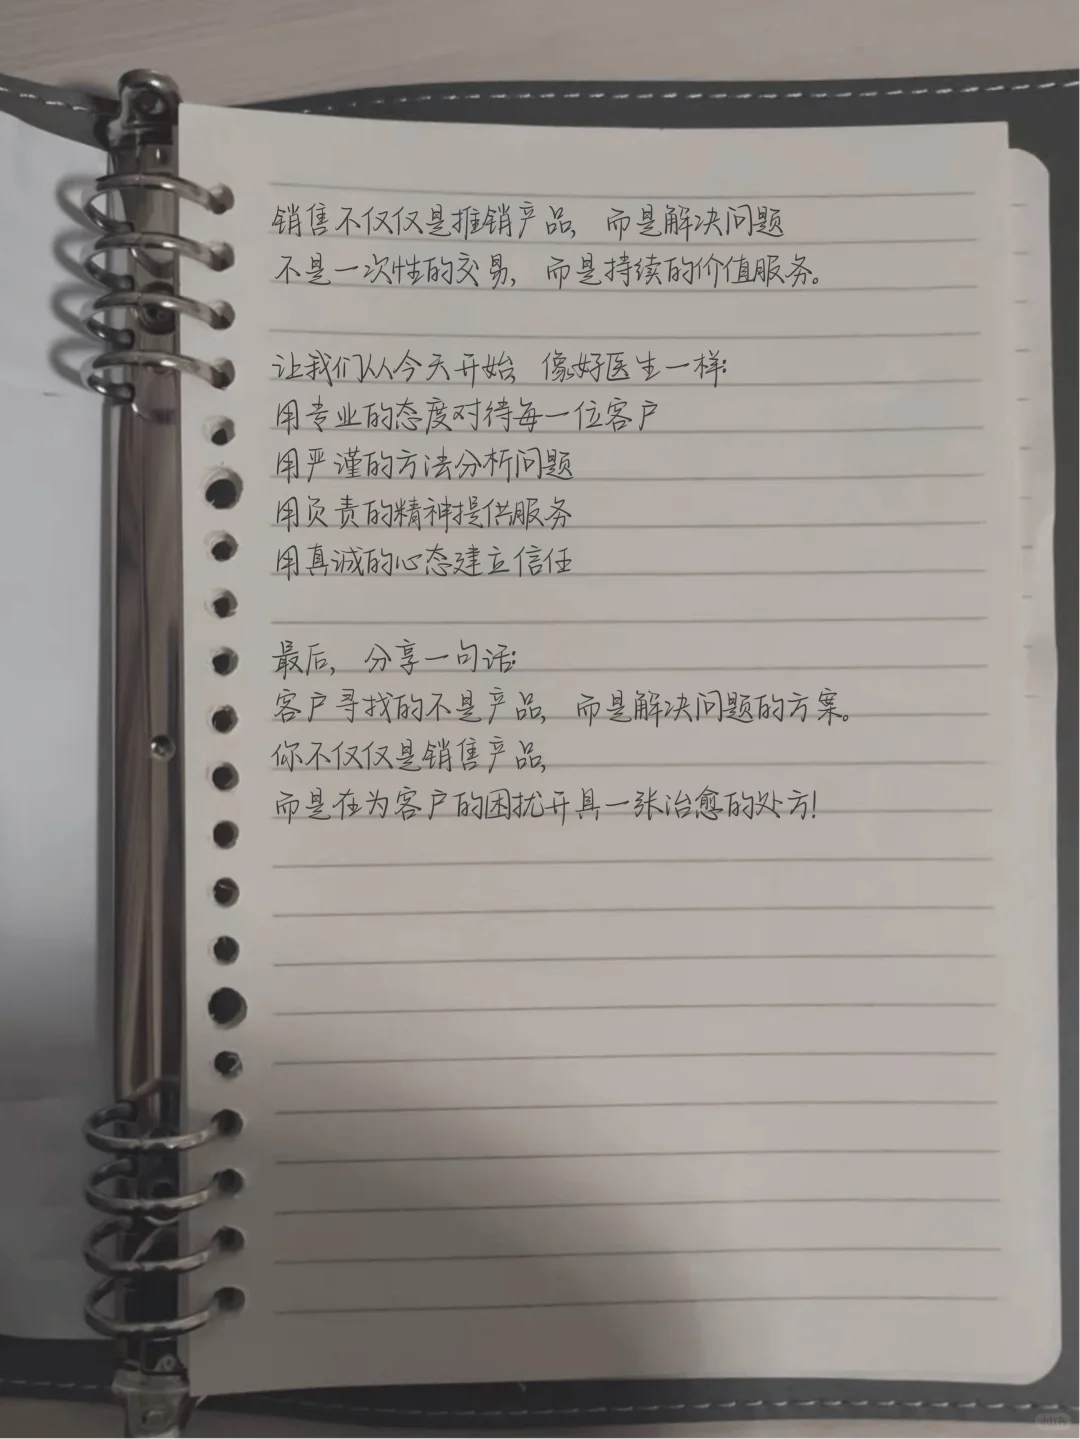 销售不仅仅是推销产品，而是解决问题
不是一次性的交易，而是持续的价值服务。
让我们从今天开始，像好医生一样：
用专业的态度对待每一位客户
用严谨的方法分析问题
用负责的精神提供服务
用真诚的心态建立信任
最后，分享一句话：
客户寻找的不是产品，而是解决问题的方案。
你不仅仅是销售产品，
而是在为客户的困扰开具一张治愈的处方！